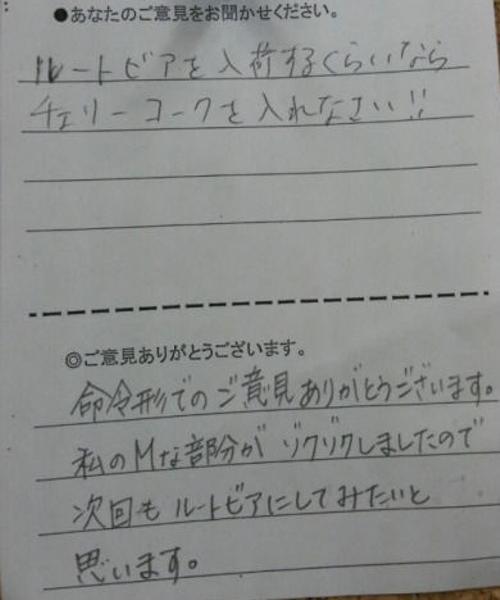 ●あなたのご意見をお聞かせください。
ルートビアを入荷するくらいなら
チェリーコークを入れなさい!!
◎ご意見ありがとうございます。
命令形でのご意見ありがとうございます。
私のMな部分がゾクゾクしましたので
次回もルートビアにしてみたいと
思います。